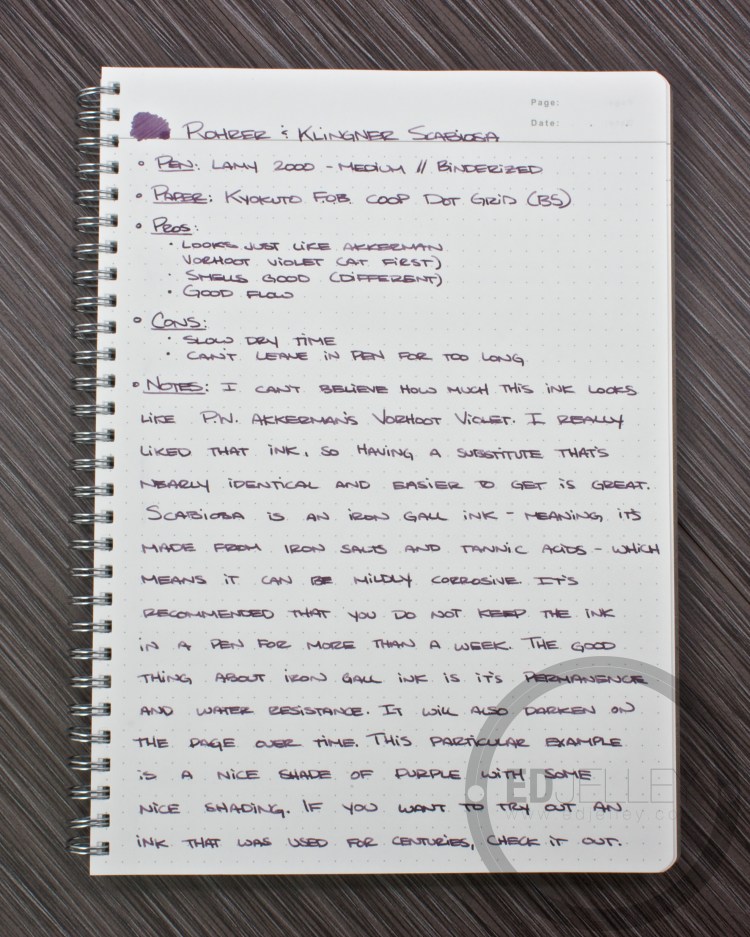 Page:
Date:
ROHRER & KLINGNER SCABIOSA
PEN: LAMY 2000 - MEDIUM // BINDERIZED
PAPER: KYOKUTO F.O.B. COOP DOT GRID (B5)
PROS:
LOOKS JUST LIKE AKKERMAN
VORHOOT VIOLET (AT FIRST)
SMELLS GOOD (DIFFERENT)
GOOD FLOW
CONS:
SLOW DRY TIME
CAN'T LEAVE IN PEN FOR TOO LONG
NOTES: I CAN'T BELIEVE HOW MUCH THIS INK LOOKS
LIKE P.W. AKKERMAN'S VORHOOT VIOLET. I REALLY
LIKED THAT INK, SO HAVING A SUBSTITUTE THAT'S
NEARLY IDENTICAL AND EASIER TO GET IS GREAT.
SCABIOSA IS AN IRON GALL INK - MEANING IT'S
MADE FROM IRON SALTS AND TANNIC ACIDS - WHICH
MEANS IT CAN BE MILDLY CORROSIVE. IT'S
RECOMMENDED THAT YOU DO NOT KEEP THE INK
IN A PEN FOR MORE THAN A WEEK. THE GOOD
THING ABOUT IRON GALL INK IS IT'S PERMANENCE
AND WATER RESISTANCE. IT WILL ALSO DARKEN ON
THE PAGE OVER TIME. THIS PARTICULAR EXAMPLE
IS A NICE SHADE OF PURPLE WITH SOME
NICE SHADING. IF YOU WANT TO TRY OUT AN
INK THAT WAS USED FOR CENTURIES, CHECK IT OUT.
EDJELLEY
www.edjelley.co